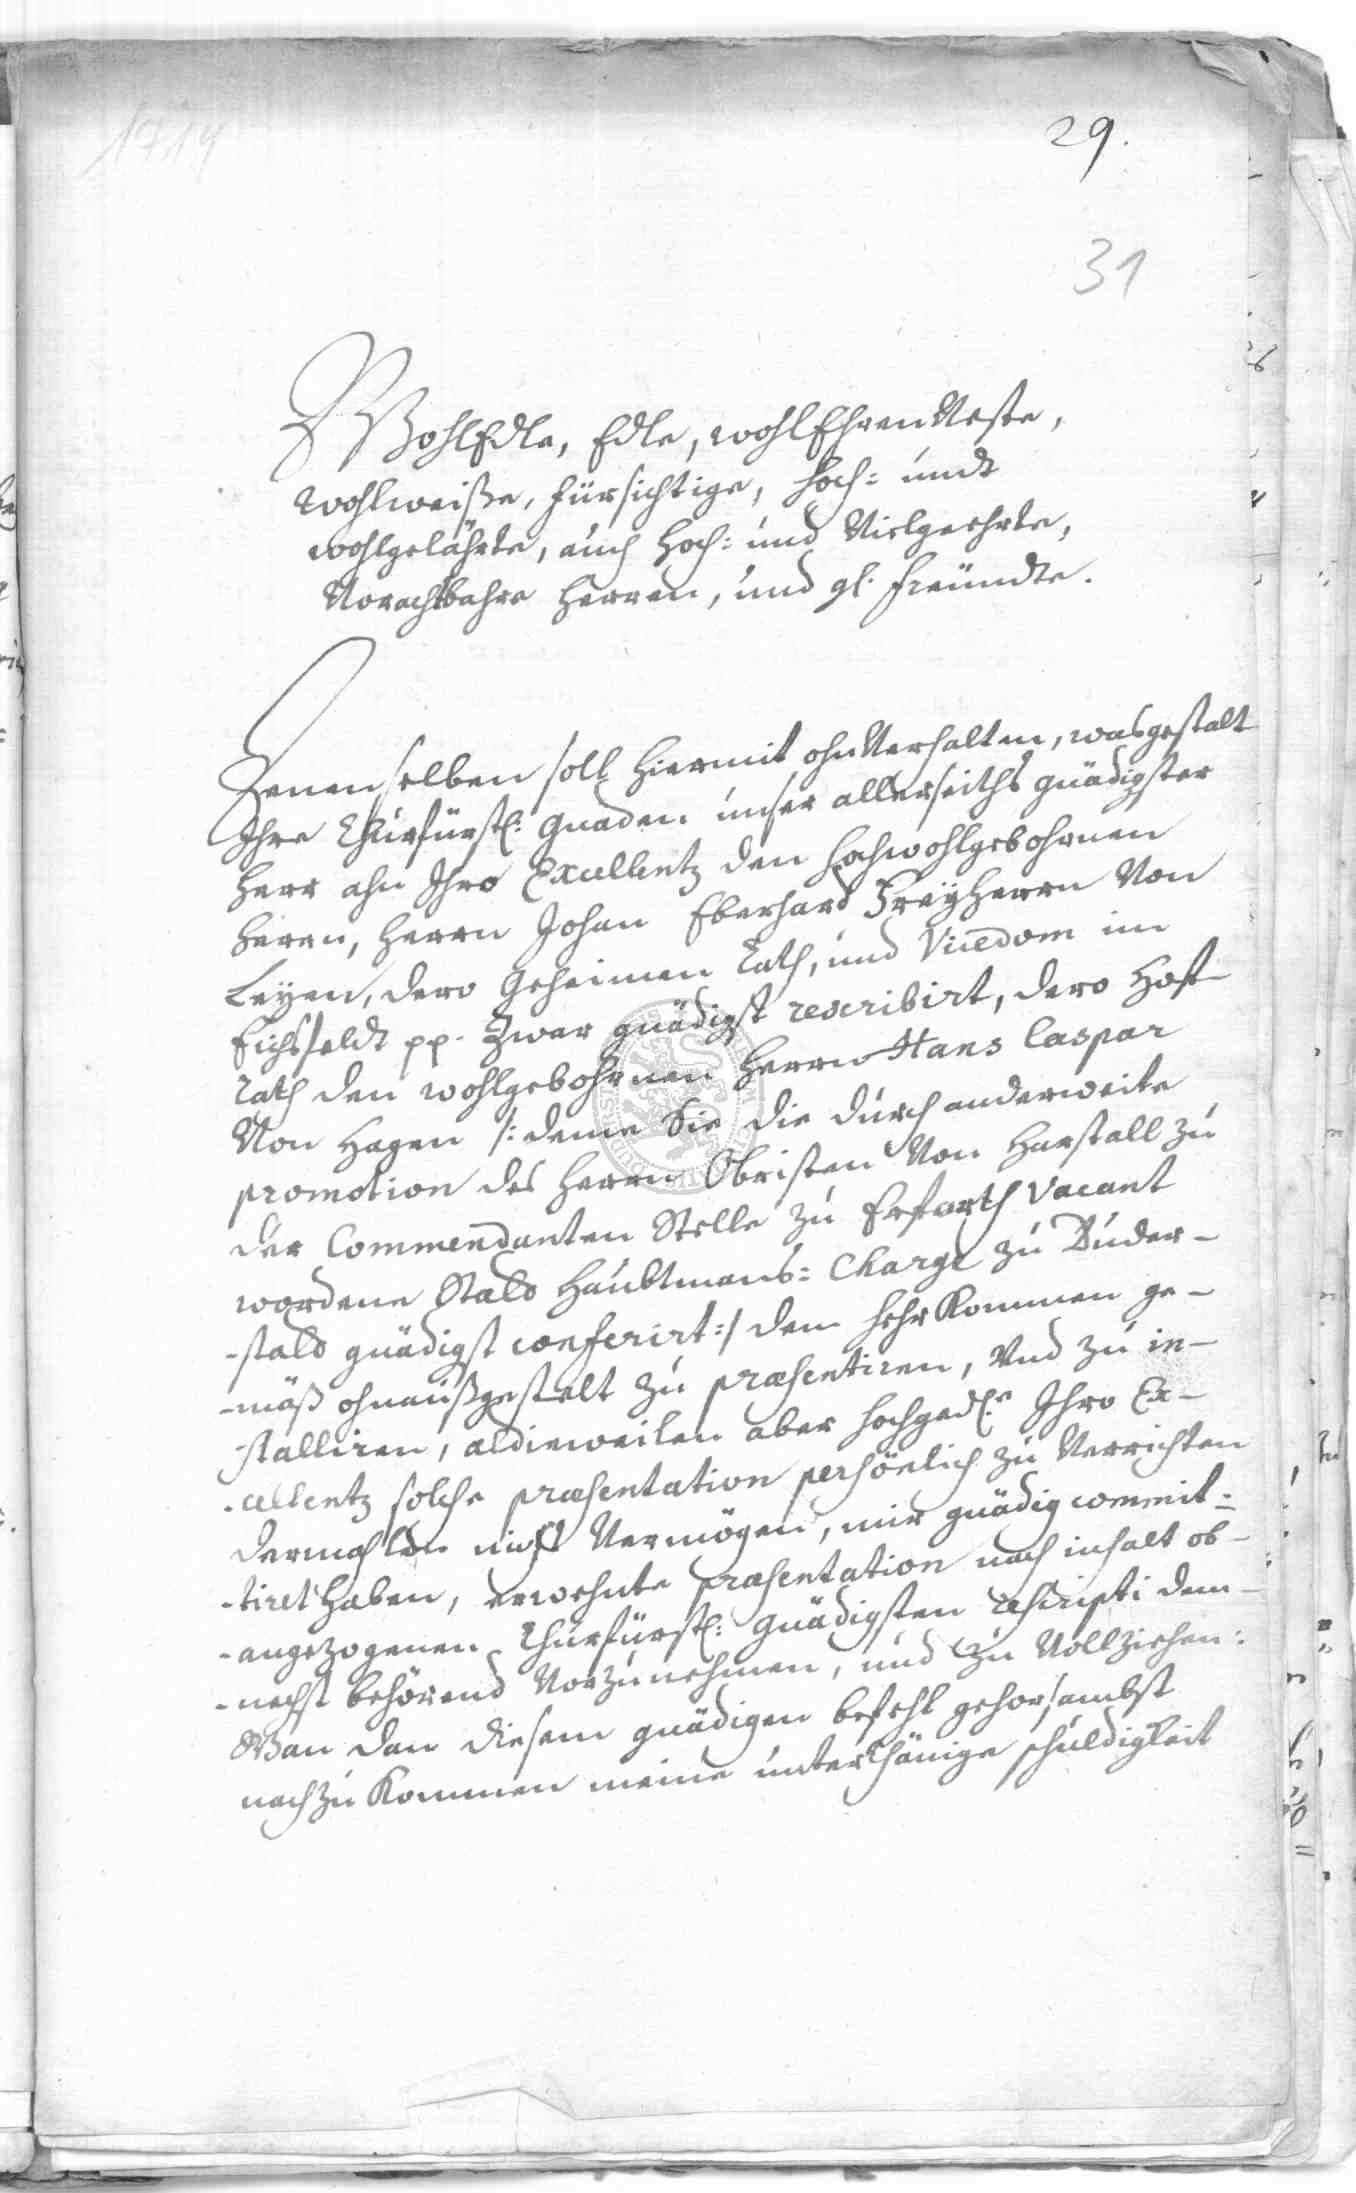 1714
29.
31
WohlEdle, Edle, wohlEhrenVeste,
wohlweiße, fürsichtige, hoch= undt
wohlgelährte, auch hoch= und Vielgeehrte,
Vorachtbahre Herren, und gl. freündte.
Denenselben soll hiermit ohnVerhalten, wasgestalt
Ihre Churfürstl: Gnaden unser allerseiths gnädigster
Herr ahn Ihro Excellentz den hochwohlgebohrnen
Herrn, Herrn Johan Eberhard FreyHerrn Von
Leyen, dero Geheimen Rath, und Vicedom im
Eichsfeldt pp. Zwar gnädigst rescribirt, dero Hoff
Rath den wohlgebohrnen Herrn Hans Caspar
Von Hagen /: deme Sie die durch anderweite
promotion des Herrn Obristen Von Harstall zu
der Commendanten Stelle zu Erfurth Vacant
wordene Stald Haubtmans= Charge zu Duder-
-stald gnädigst conferirt :/ dem hehrKommen ge-
-mäß ohnaußgestelt zu præsentiren, Und zu in-
-stalliren, aldieweilen aber hochgedl. Ihro Ex-
-cellentz solche præsentation persönlich zu Verrichten
dermahlen nicht Vermögen, mir gnädig commit=
-tiret haben, erwehnte præsentation nach inhalt ob-
-angezogenen Churfürstl: Gnädigsten rescripti dem-
-nechst behörend Vorzunehmen, und zu Vollziehen:
Wan dan diesem gnädigen befehl gehorsambst
nachzuKommen meine unterthänige schuldigkeit